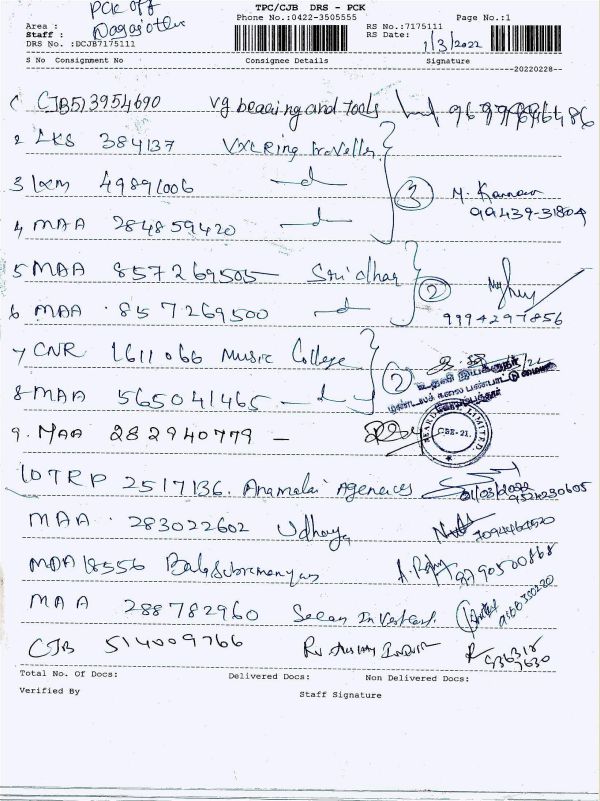 TPC/CJB DRS - PCK
PCK off
Area :
Phone No.:0422-3505555
RS No.:7175111
Page No.:1
Staff :
RS Date:
1/3/2022
DRS No. :DCJB7175111
S No Consignment No Consignee Details Signature
20220228
CJB513954690 Vg bearing and Tools
2 LKS 384137 VXL Ring traveller
3 lxm 49891006
3
M. Kannan
99439-31804
4 MAA 284859420
5 MAA 857269505 Sridhar
2
6 MAA 857269500
9994297856
7 CNR 1611066 Music College
2
உதவி இயக்குநர்
மண்டலக் கலை பண்பாட்டு மையம்
8 MAA 565041465
9. MAA 282940779
LIMITED
CBE-21.
10 TRP 2517136. Anamalai Agencies
01/03/2022
9524230605
MAA 283022602 Udhaya
MAA 18556 Balasubramanyan
8790500868
MAA 288782960
CJB 514009766
Total No. Of Docs: Delivered Docs: Non Delivered Docs:
Verified By Staff Signature